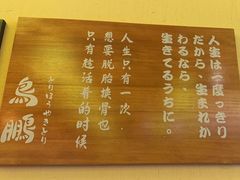 人生は一度っきり
だから、生まれか
わるなら、
生きてるうちに。
人生只有一次．
想要脱胎換骨也
只有趁活著的時候
鳥鵬
とりほうやきとり